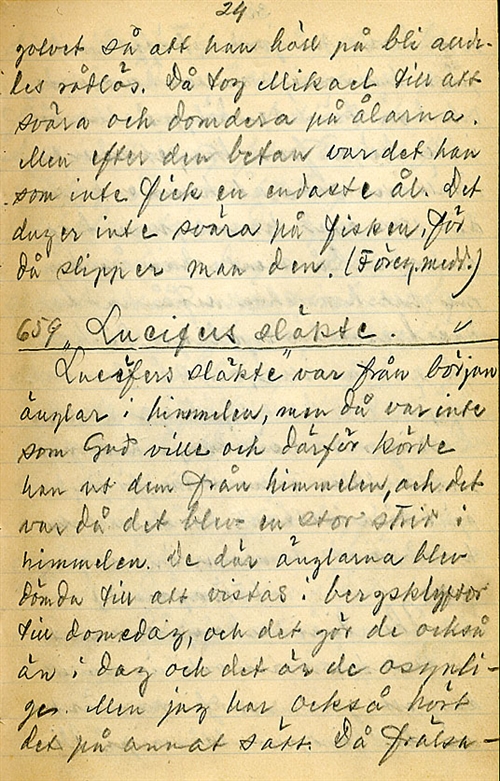 24
golvet så att han höll på bli alldе-
les rådlös. Då tog Mikael till att
svära och domdera på ålarna.
Men efter den betan var det han
som inte fick en endaste ål. Det
duger inte svära på fisken, för
då slipper man den. (Föreg. medd.)
659 "Lucifers släkte.
"Lucifers släkte" var från början
änglar i himmelen, men då var inte
som Gud ville och därför körde
han ut dem från himmelen, och det
var då det blev en stor strid i
himmelen. De där änglarna blev
dömda till att vistas i bergsklyftor
till domedag, och det gör de också
än i dag och det är de osynli-
ga. Men jag har också hört
det på annat sätt. Då frälsa-